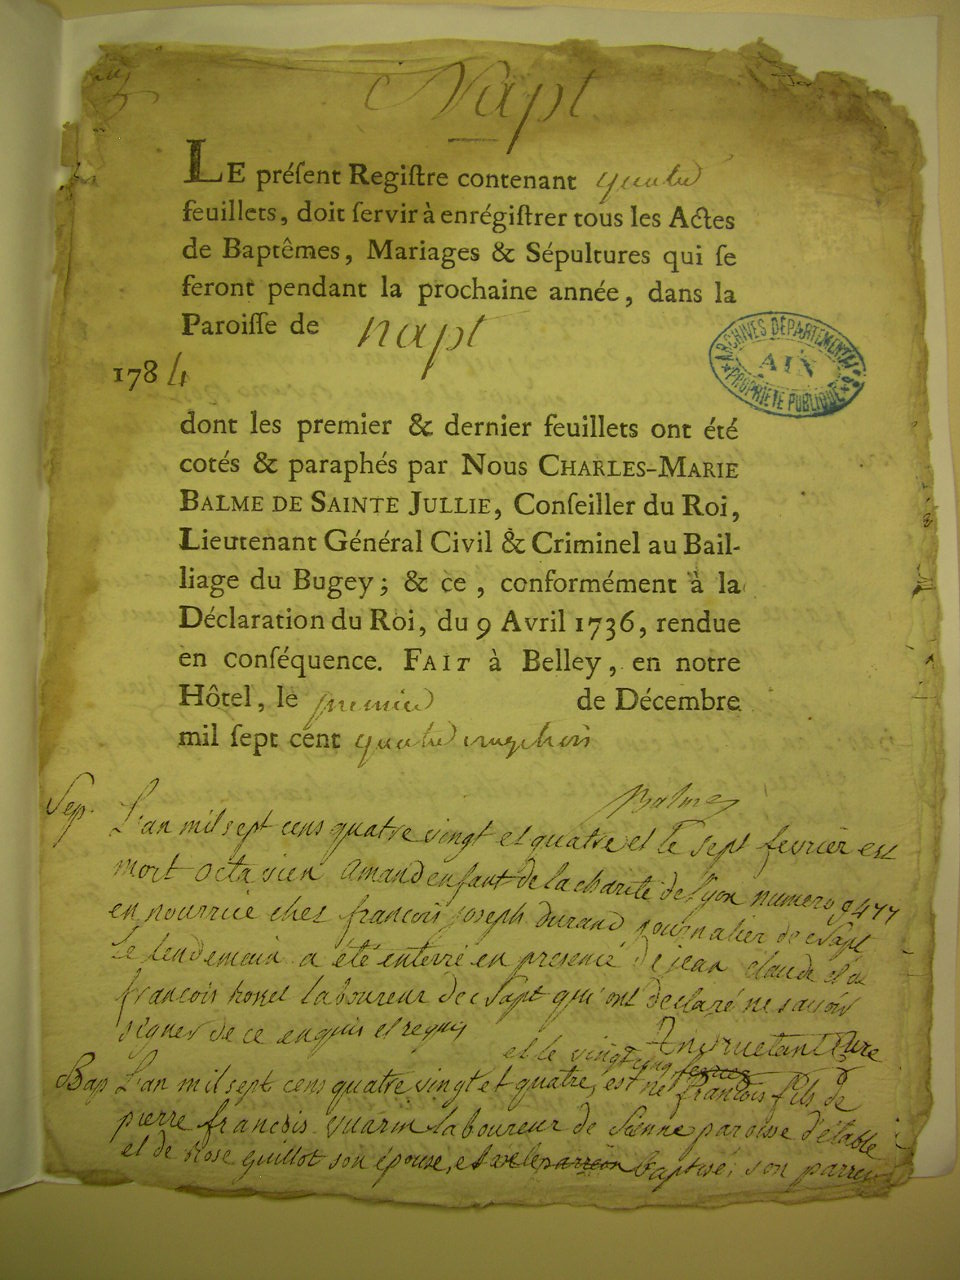 Napt
LE préſent Regiſtre contenant quatre
feuillets, doit ſervir à enrégiſtrer tous les Actes
de Baptêmes, Mariages & Sépultures qui ſe
feront pendant la prochaine année, dans la
Paroiſſe de napt
ARCHIVES DÉPARTEMENTALES
AIN
PROPRIÉTÉ PUBLIQUE
1784
dont les premier & dernier feuillets ont été
cotés & paraphés par NOUS CHARLES-MARIE
BALME DE SAINTE JULLIE, Conſeiller du Roi,
Lieutenant Général Civil & Criminel au Bail-
liage du Bugey; & ce, conformément à la
Déclaration du Roi, du 9 Avril 1736, rendue
en conſéquence. FAIT à Belley, en notre
Hôtel, le premier de Décembre
mil ſept cent quatre vingt trois
Balme
Sep. L'an mil sept cens quatre vingt et quatre et le sept fevrier est
mort octavien amand enfant de la charité de Lyon numero 9477
en nourrice chez francois joseph durand journalier de Napt
le lendemain a été enterré en presence de jean claude et de
francois laboureur de Napt qui ont declaré ne savoir
signer de ce enquis et requis
Curé
et le vingt cinq fevrier
Bap L'an mil sept cens quatre vingt et quatre, est né francois fils de
pierre francois laboureur de Sienne paroisse d'étable
et de Rose guillot son épouse, et parrein baptisé; son parrein